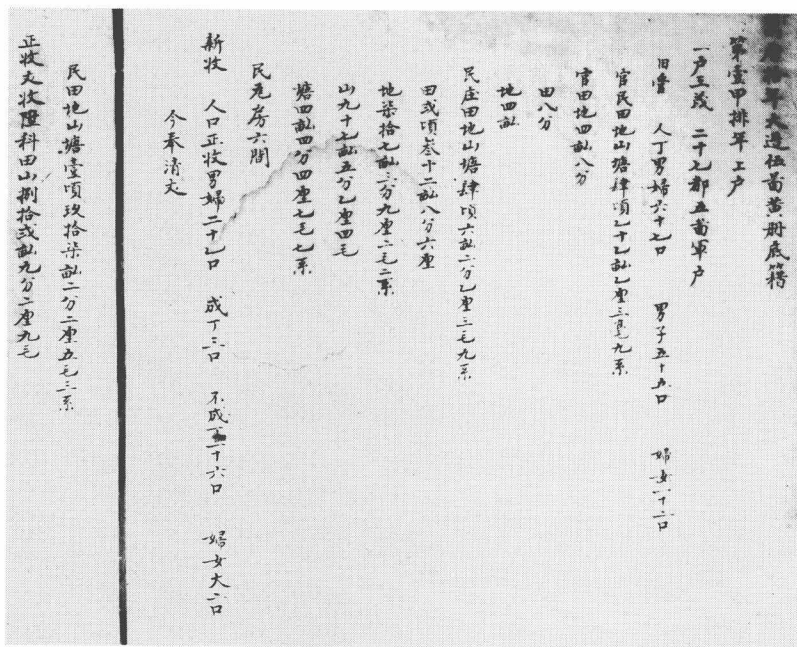 曆拾年大造伍啚黃冊底籍
第壹甲排年 上户
一户王茂 二十七都五啚軍户
旧管 人丁男婦六十七口 男子五十五口 婦女一十二口
官民田地山塘肆頃乙十乙畝乙厘三毫九系
官田地四畝八分
田八分
地四畝
民庄田地山塘肆頃六畝二分乙厘三毛九系
田弍頃叁十二畝八分六厘
地柒拾七畝三分九厘二毛二系
山九十七畝五分乙厘四毛
塘四畝四分四厘七毛七系
民瓦房六間
新收 人口正收男婦二十乙口 成丁三口 不成丁一十六口 婦女大二口
今奉清丈
民田地山塘壹頃玖拾柒畝二分二厘五毛三系
正收丈收陞科田山捌拾弍畝九分二厘九毛